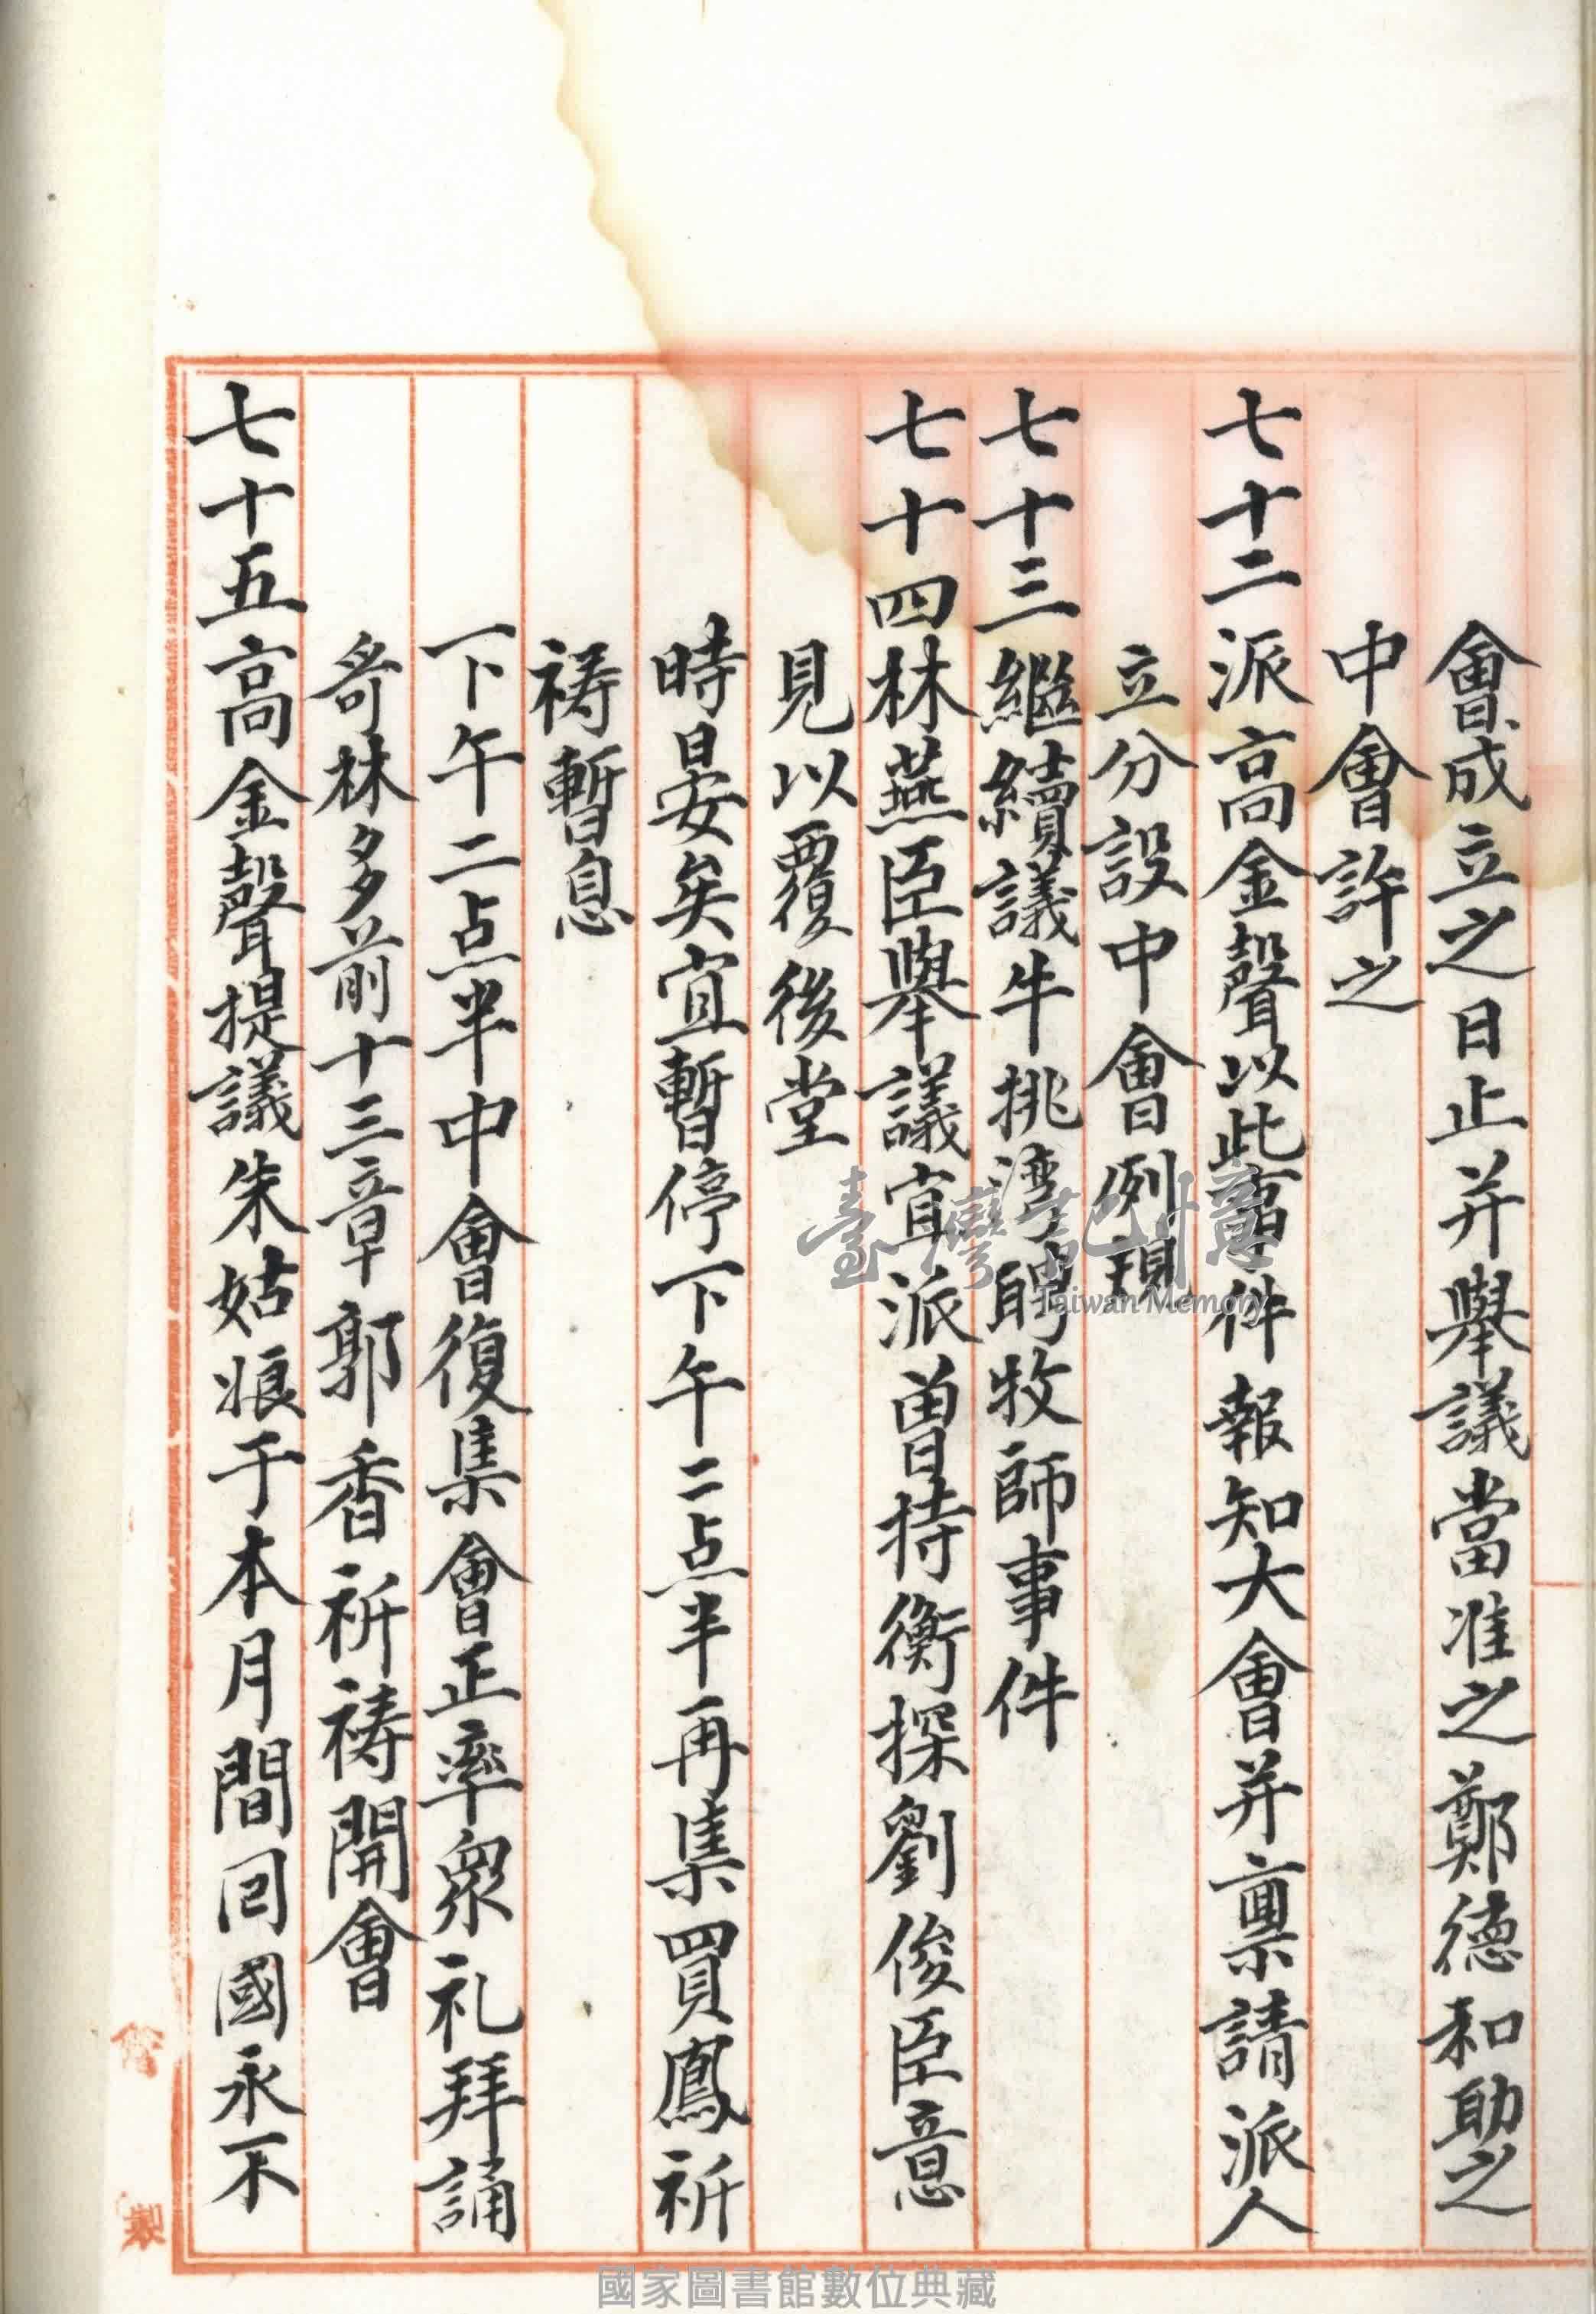 會成立之日止并舉議當准之鄭德和助之
中會許之
七十二派高金聲以此事件報知大會并稟請派人
立分設中會例規
七十三繼續議牛挑湾聘牧師事件
七十四林燕臣舉議宜派曽持衡探劉俊臣意
見以覆後堂
時晏矣宜暫停下午二点半再集買鳳祈
祷暫息
下午二点半中會復集會正率衆礼拜誦
哥林多前十三章郭香祈祷開會
七十五高金聲提議朱姑娘于本月間回國永不
臺灣記憶
Taiwan Memory
國家圖書館數位典藏